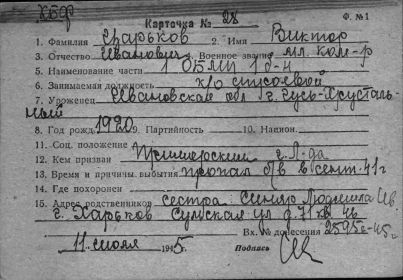 КБФ
Ф. №1
Карточка № 28
1. Фамилия Сварьков 2. Имя Виктор
3. Отчество Иванович 4. Военное звание мл. ком-р
5. Наименование части 1 ОБМП 1 б-н
6. Занимаемая должность к/о
7. Уроженец Ивановская обл г. Гусь-Хрусталь-
ный
8. Год рожд. 1920 9. Партийность 10. Национ.
11. Соц. положение
12. Кем призван Приморским г. Л-да
13. Время и причины выбытия пропал б/в сент. 41 г
14. Где похоронен
15. Адрес родственников сестра: Людмила Ив.
г. Харьков Сумская ул д. 71 кв 46
Вх. № донесения 2595с-45г.
11 июля 1945г. Подпись